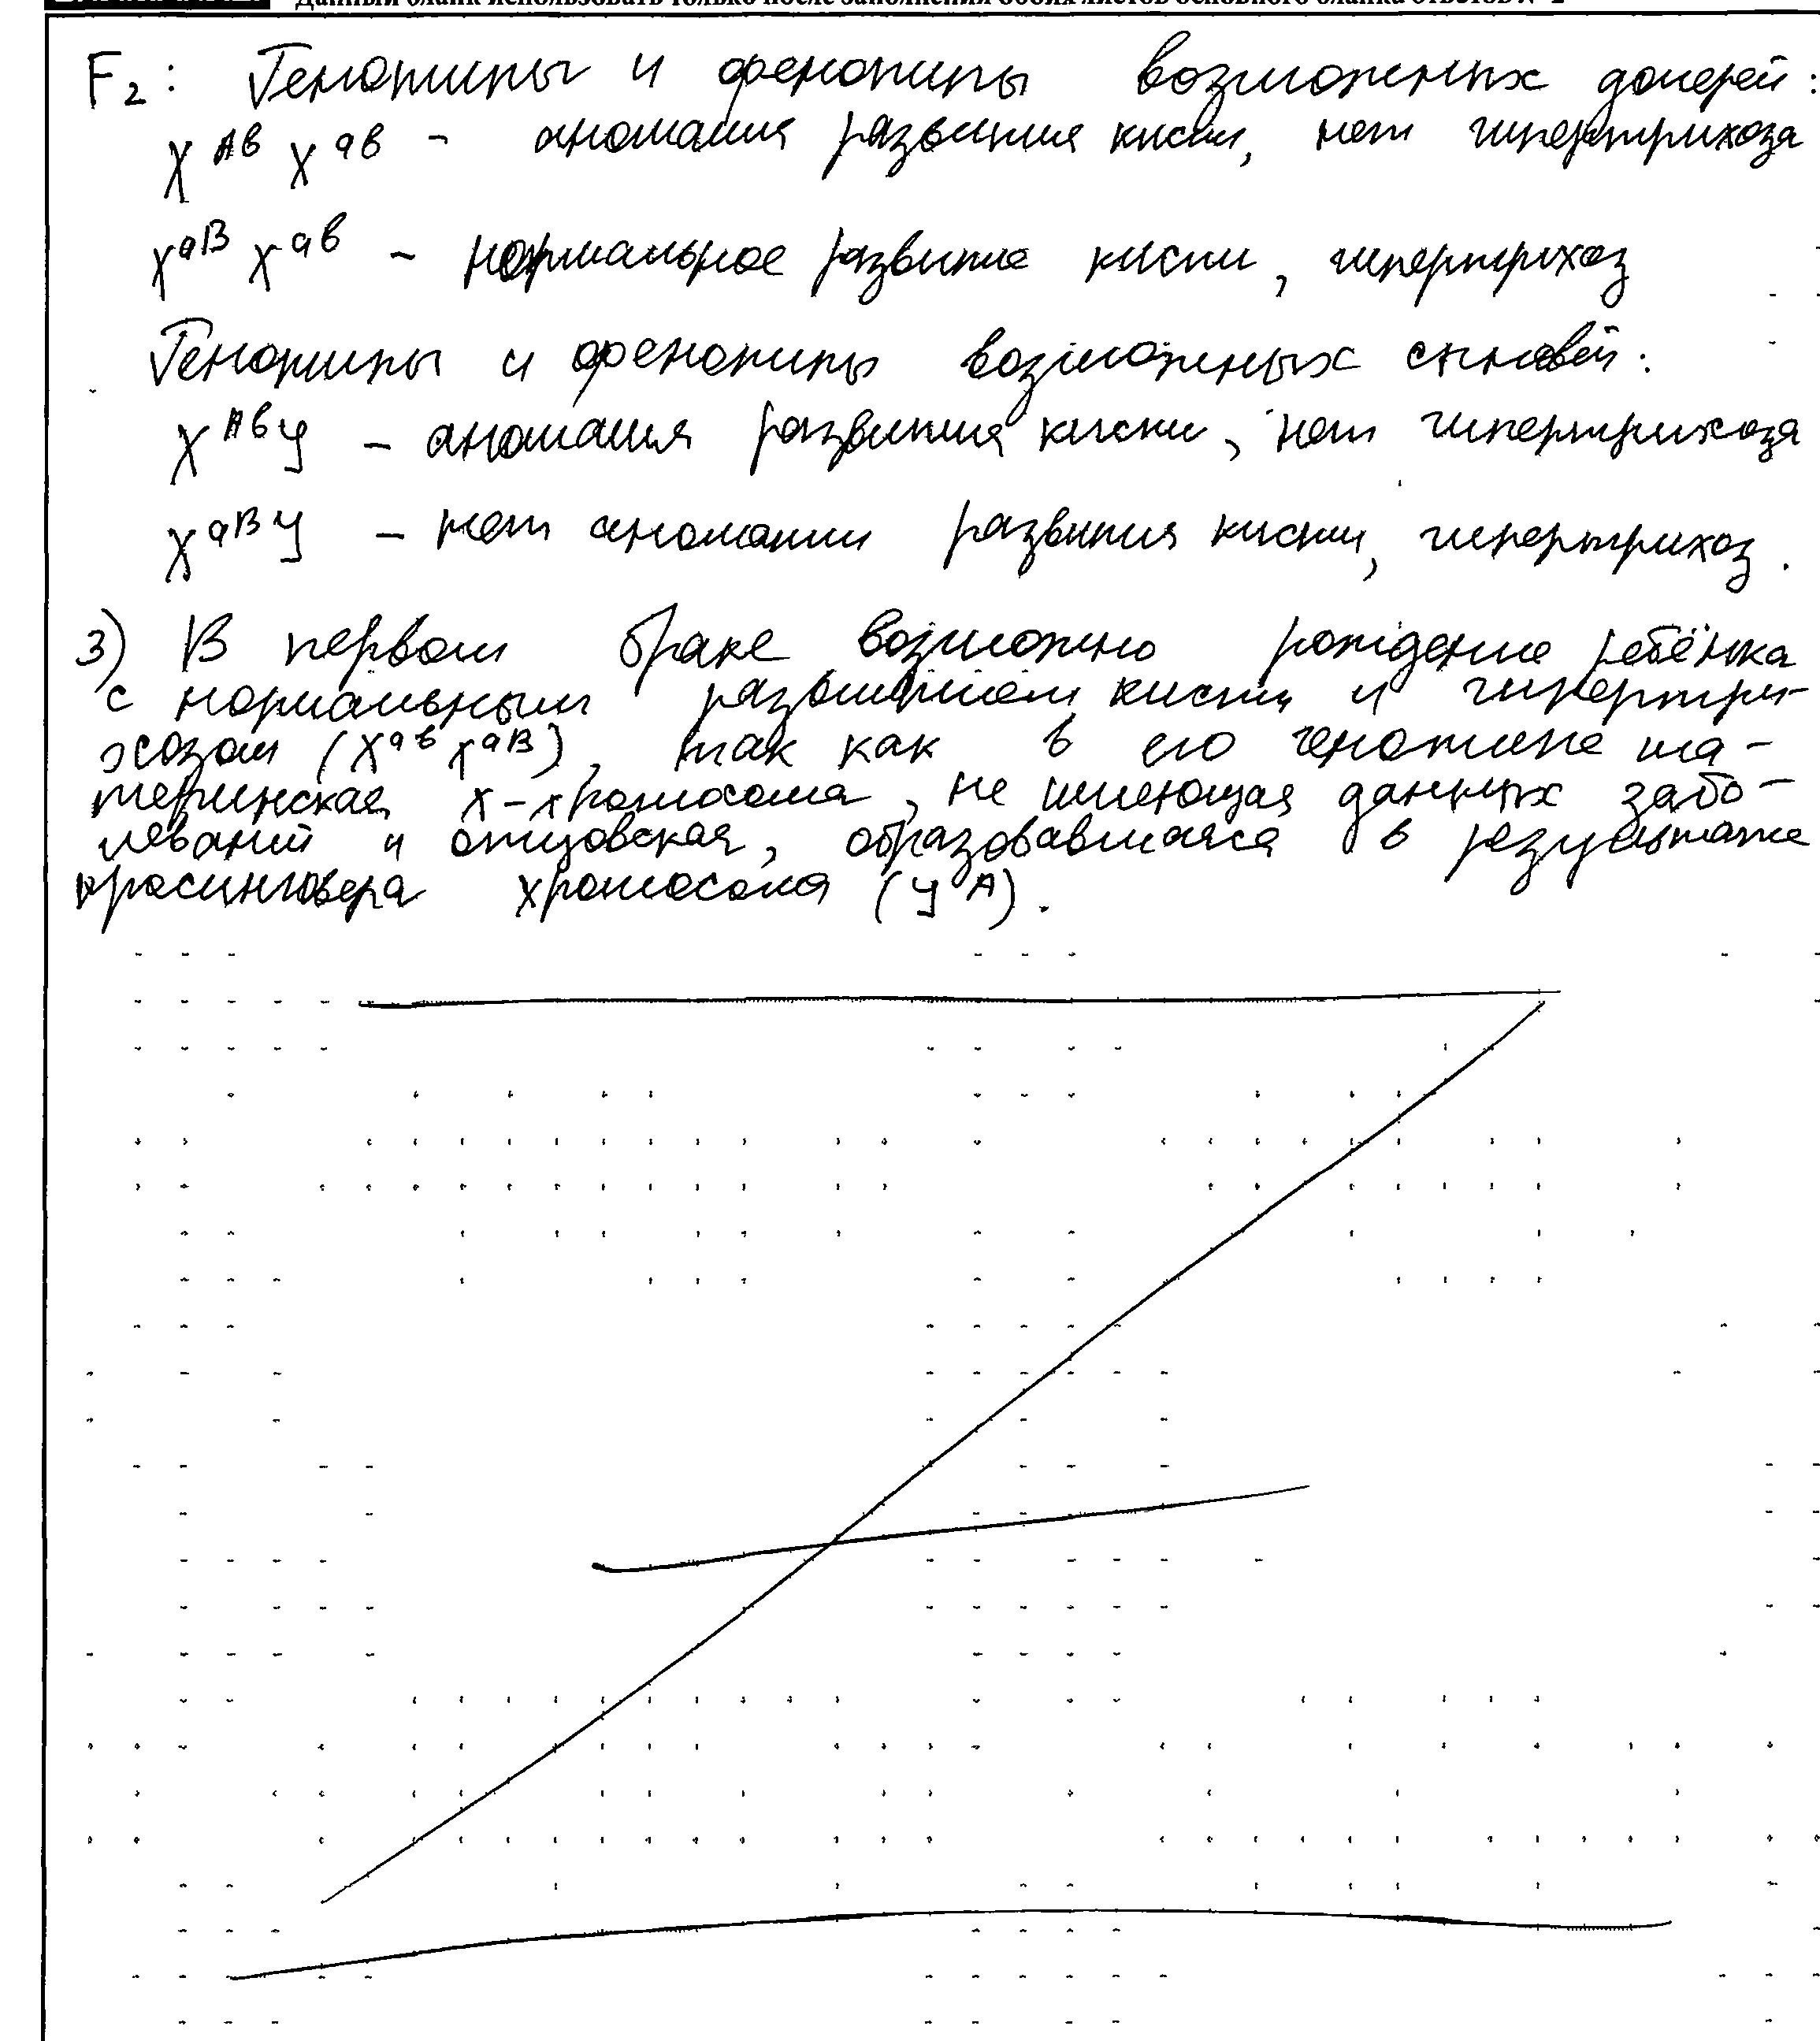 Данный бланк использовать только после заполнения обоих листов основного бланка ответов № 2
F₂: Генотипы и фенотипы возможных дочерей:
X^Aв X^aв - аномалия развития кисти, нет гипертрихоза
X^aB X^aв - нормальное развитие кисти, гипертрихоз
Генотипы и фенотипы возможных сыновей:
X^Aв У - аномалия развития кисти, нет гипертрихоза
X^aB У - нет аномалии развития кисти, гипертрихоз.
3) В первом браке возможно рождение ребёнка
с нормальным развитием кисти и гипертри-
хозом (X^aв X^aB), так как в его генотипе ма-
теринская X-хромосома, не имеющая данных забо-
леваний и отцовская, образовавшаяся в результате
кросинговера хромосома (У^A).